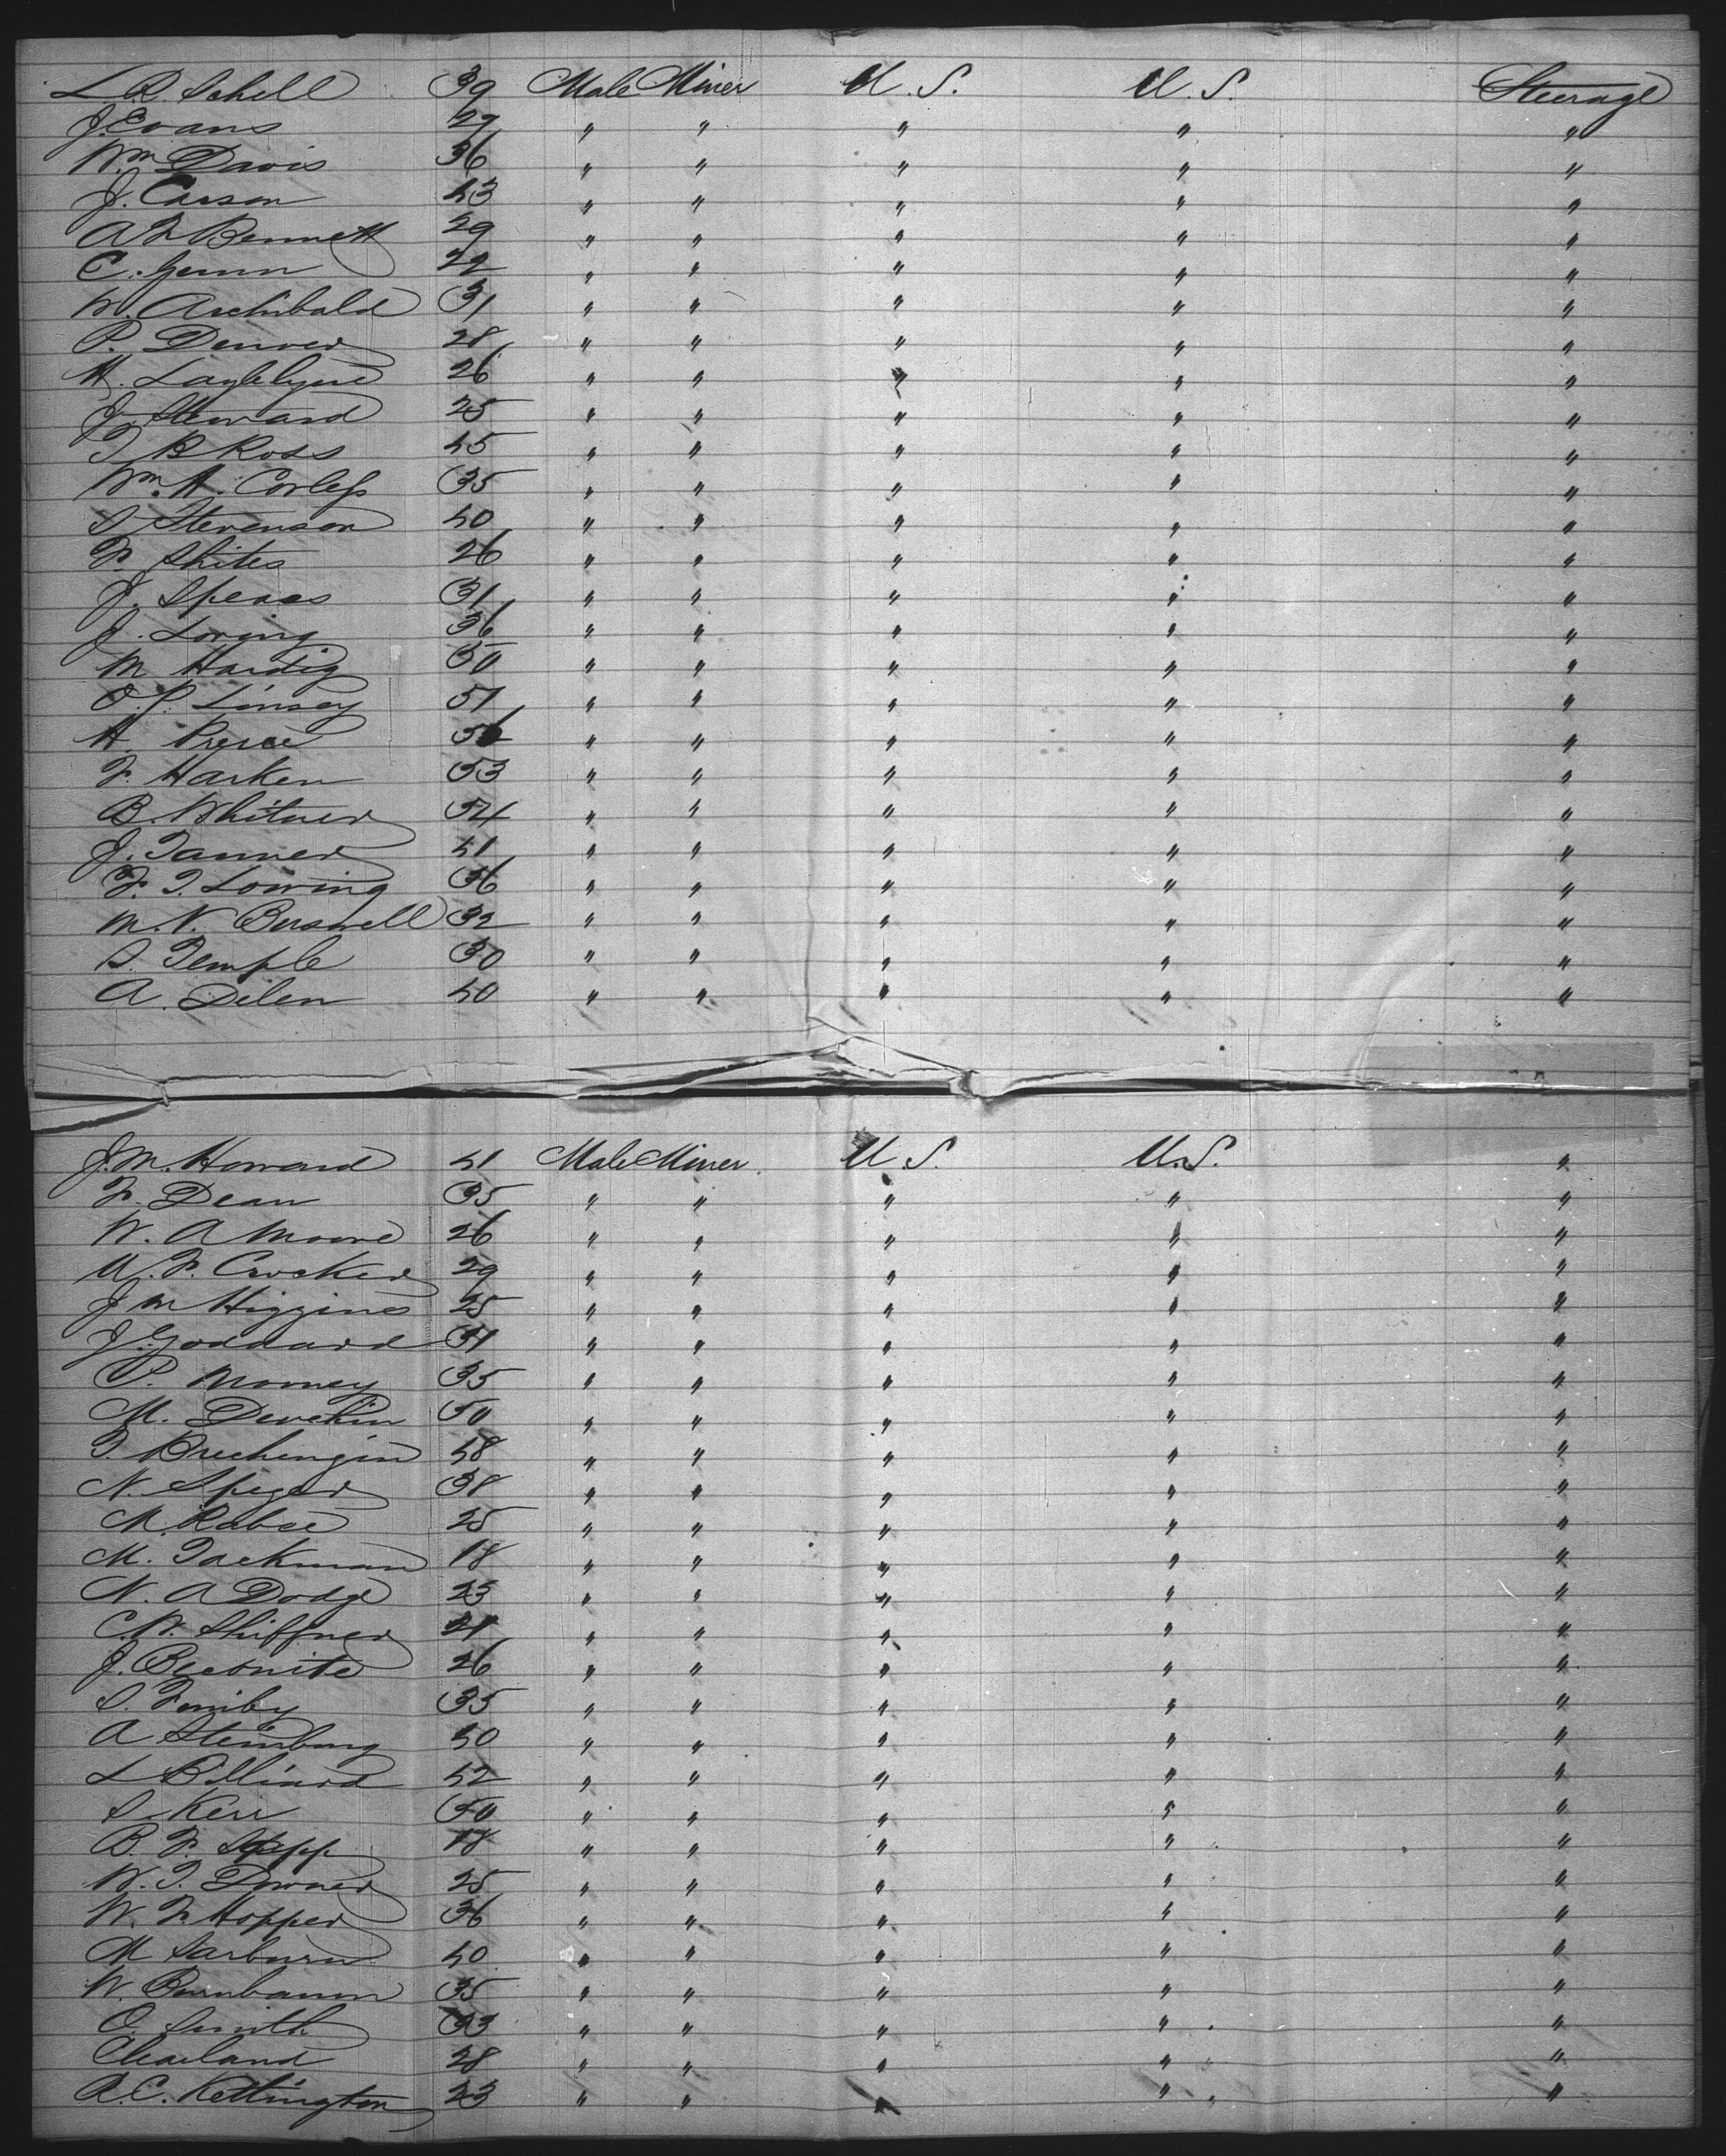 L. R. Schell 39 Male Miner U. S. U. S. Steerage
J. Evans 29 " " " " "
Wm Davis 36 " " " " "
J. Carson 43 " " " " "
A F Bennett 29 " " " " "
C. Gunn 22 " " " " "
W. Archibald 31 " " " " "
P. Denver 28 " " " " "
H. 26 " " " " "
J. Steward 25 " " " " "
T B Ross 45 " " " " "
Wm. H. Corless 35 " " " " "
S Stevenson 40 " " " " "
F. Shites 26 " " " " "
J. Spears 31 " " " " "
J. Loring 36 " " " " "
M Hardig 50 " " " " "
O. P. Linsey 51 " " " " "
H. Pierce " " " " "
F. Harken 53 " " " " "
B. Whitner 54 " " " " "
J. Tanner 41 " " " " "
F. T. Lowing 36 " " " " "
M. N. Buswell 32 " " " " "
S. Temple 30 " " " " "
A. Dilen 40 " " " " "
J. M. Howard 41 Male Miner U. S. U. S. "
F. Dean 35 " " " " "
W. A Moore 26 " " " " "
W. F. Crocker 29 " " " " "
J M Higgins 25 " " " " "
J. Goddard 31 " " " " "
P. Morney 35 " " " " "
M. 50 " " " " "
T. 48 " " " " "
N. Speger 38 " " " " "
M. Rabee 25 " " " " "
M. Tackman 18 " " " " "
N. A Dodge 23 " " " " "
C. W. Shiffner 21 " " " " "
J. 26 " " " " "
S. 35 " " " " "
A Steinburg 40 " " " " "
L Billiard 42 " " " " "
S. Kerr 50 " " " " "
B. F. 18 " " " " "
W. T. Downer 25 " " " " "
W. F. Hopper 36 " " " " "
M 40 " " " " "
W. Burnbaum 35 " " " " "
O. Smith 33 " " " " "
Cleaeland 28 " " " " "
A. C. Kettington 23 " " " " "